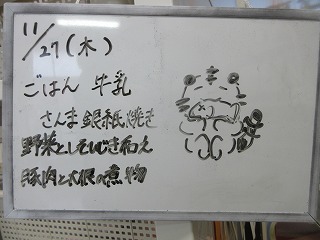 11/27(木)
ごはん 牛乳
さんま銀紙焼き
野菜としそひじき和え
豚肉と大根の煮物